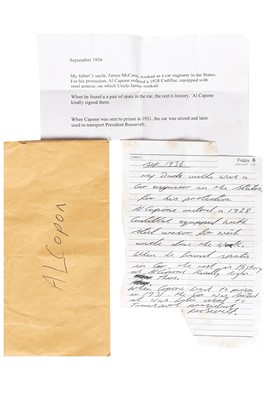 September 1936
My father's uncle, James McCann, worked as a car engineer in the States.
For his protection, Al Capone ordered a 1928 Cadillac, equipped with
steel armour, on which Uncle James worked
When he found a a pair of spats in the car, the rest is history. Al Capone
kindly signed them.
When Capone was sent to prison in 1931, the car was seized and later
used to transport President Roosevelt.
ALCopon
Friday 6
Sep 1936.
my Dads uncle was a
Car engineer in the States
For his protection
Al Capone ordered a 1928
equipped with
Steel
uncle done the work.
When he found spats
in car. The rest is History
Al Capone kindly
them.
When Capone went to prison
in 1931. The car was seized
it was later used to
president